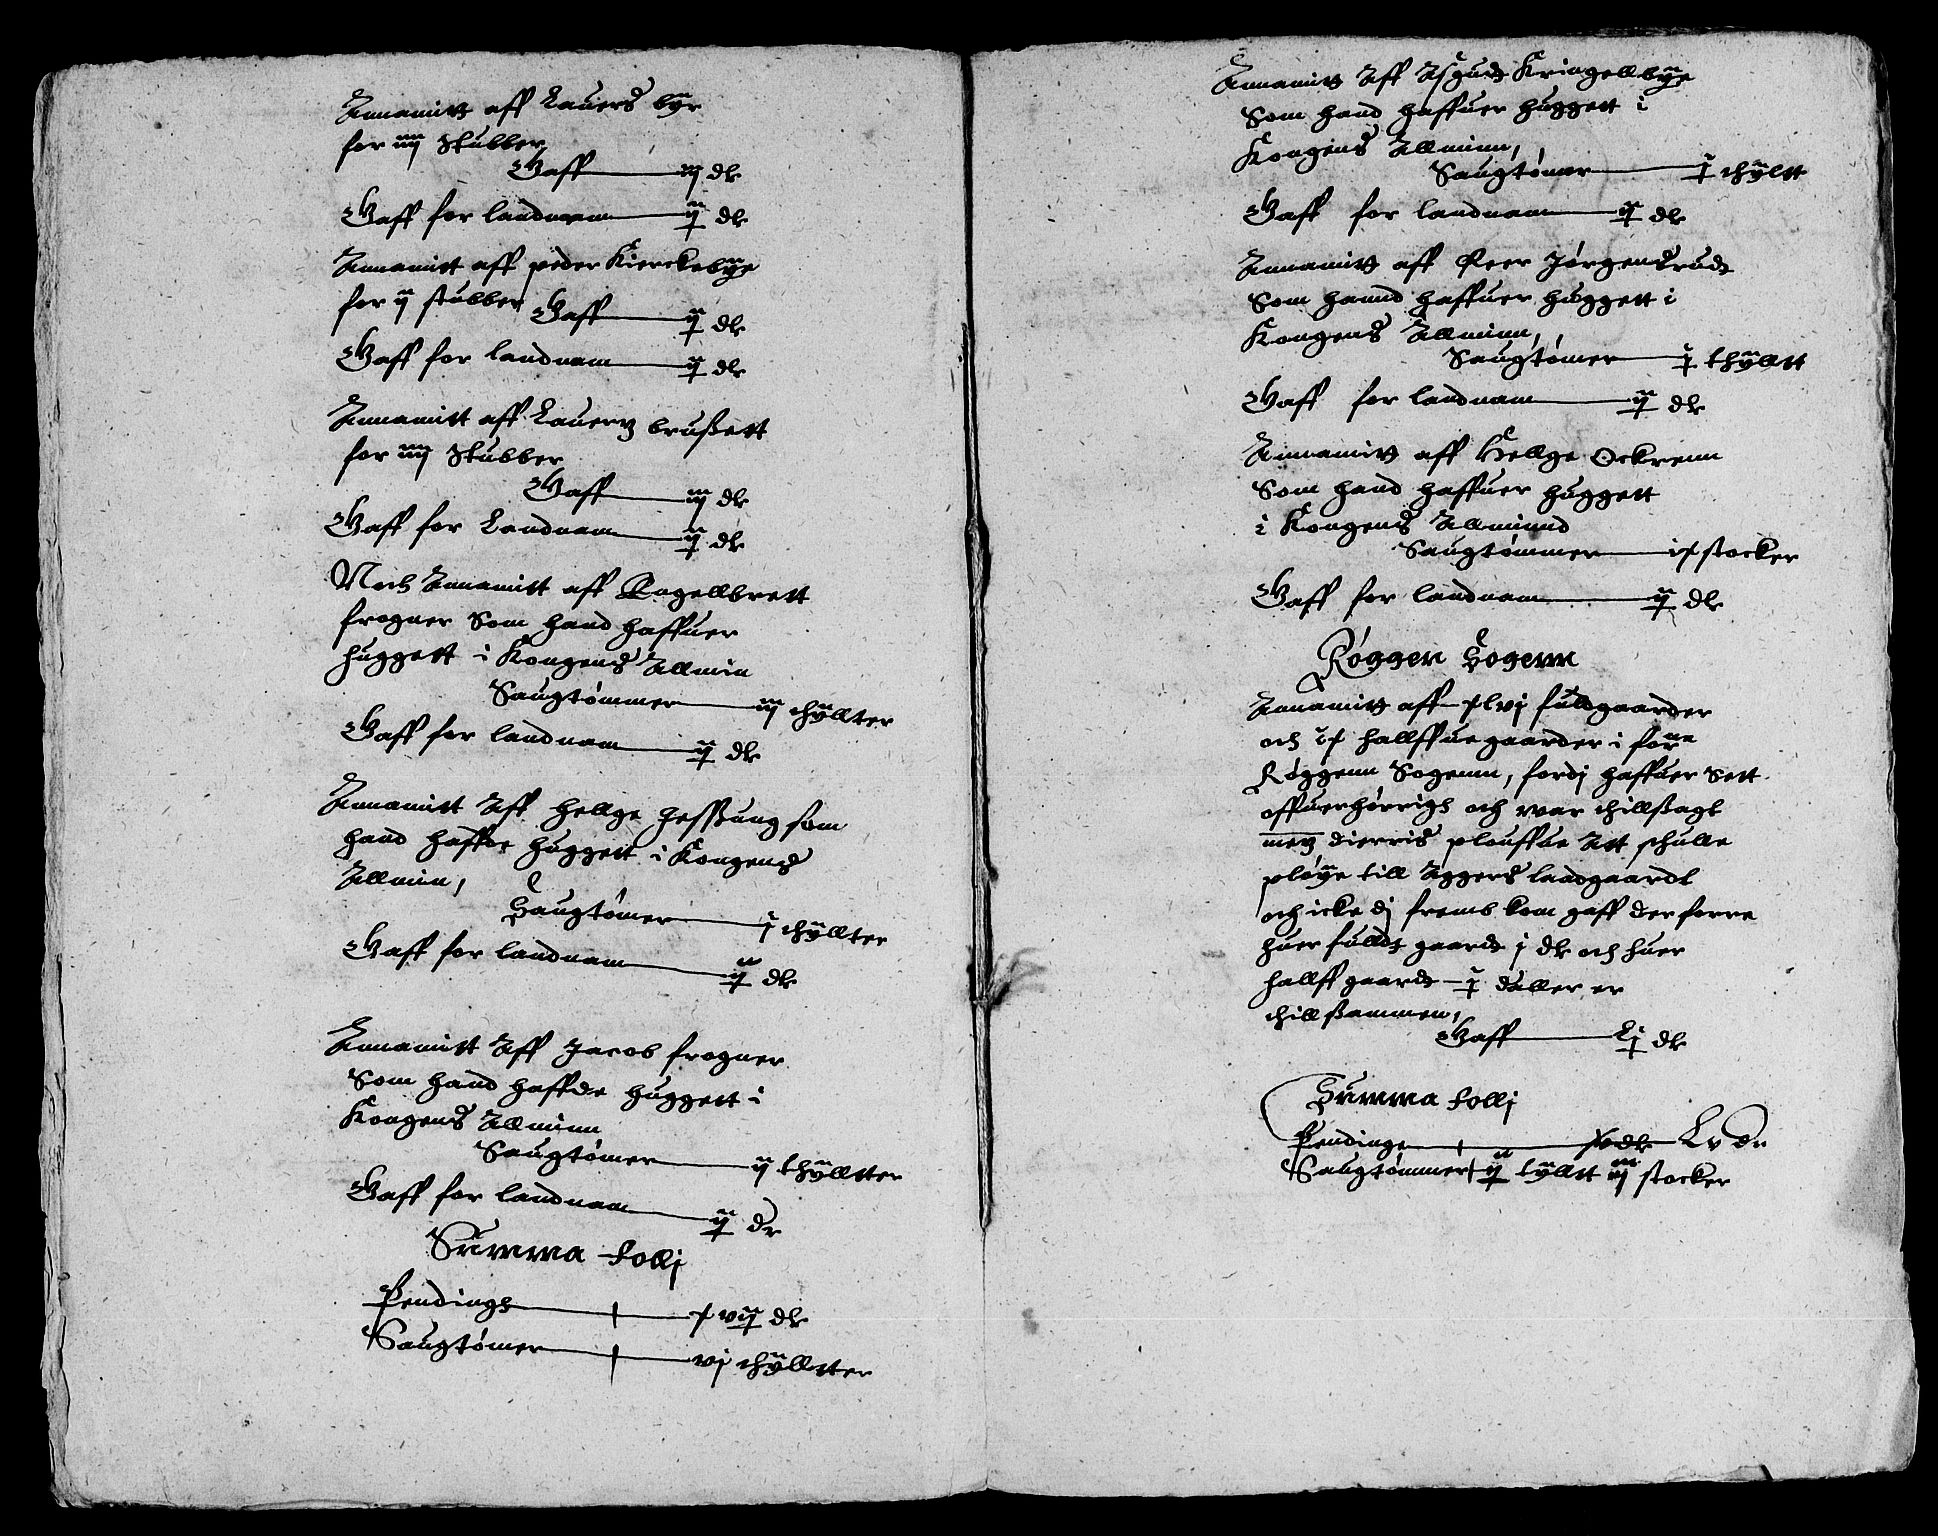 Annamitt aff Lauers byr
for iiij Stubber
Gaff iij dlr
Gaff for landnam ij dlr
Annamitt aff peder Kierckebÿe
for ij stubber Gaff ij dlr
Gaff for landnam ij dlr
Annamitt aff Lauertz brußett
for iiij Stubber
Gaff iij dlr
Gaff for Landnam ij dlr
Noch Annamitt aff Engellbrett
frogner Som hand haffuer
huggett i Kongens Allmin
Saugtømmer iij thÿllter
Gaff for landnam ij dlr
Annamitt Aff Hellge som
hand haffde huggett i Kongens
Allmin,
Saugtømer j thÿllter
Gaff for landnam ij dlr
Annamitt Aff Jacob frogner
Som hand haffde huggett i
Kongens Allminn
Saugtømer ij thÿlltter
Gaff for landnam ij dr
Summa follj
Pendinge xvij dlr
Saugtømer vj thÿlltter
Annamitt Aff Kringellbÿe
Som hand haffuer huggett i
Kongens Allminn,
Saugtømer j thÿltt
Gaff for landnam ij dlr
Annamitt aff Peer Jørgensrudt
Som hannd haffuer huggett i
Kongens Allminn,
Saugtømer j thÿlltt
Gaff for landnam ij dlr
Annamitt aff Hellge Ockrenn
Som hand haffuer huggett
i Kongens Allminnd
Saugtømmer ix stocker
Gaff for landnam ij dlr
Røggen Sogenn
Annamitt aff xlvj fuldgaarder
och ix hallffue gaarder i forne
Røggenn Sogenn, fordj haffuer Sett
offuerhørrigh och war thillßagt
mett dierris plouffue Att schulle
pløÿe till Aggers ladgaardt
och icke dj fremb kom gaff der forre
huer fulldt gaardt j dlr och huer
hallff gaardt j daller er
thillßammen,
Gaff Lj dlr
Summa follj
Pendinge Lv dr
Saugtømmer ij tÿlltt iij stocker